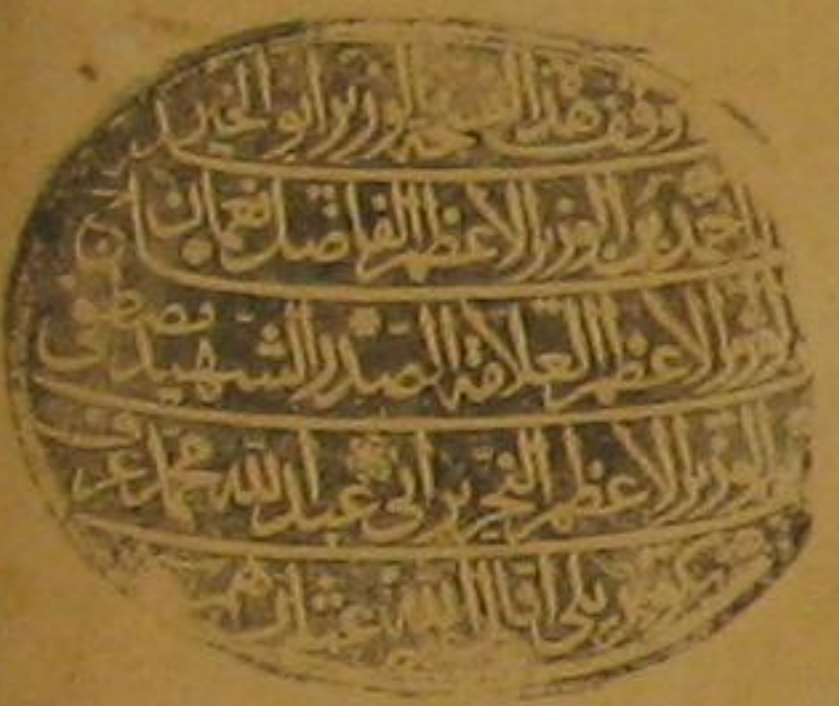 وقف هذا النسخه الوزير ابو الخير
احمد بن الوزير الاعظم الفاضل نعمان بن
الوزير الاعظم العلامة الصدر الشهيد مصطفى
بن الوزير الاعظم النحرير ابى عبد الله محمد عرف
بكوپريلى اقال الله عثارهم